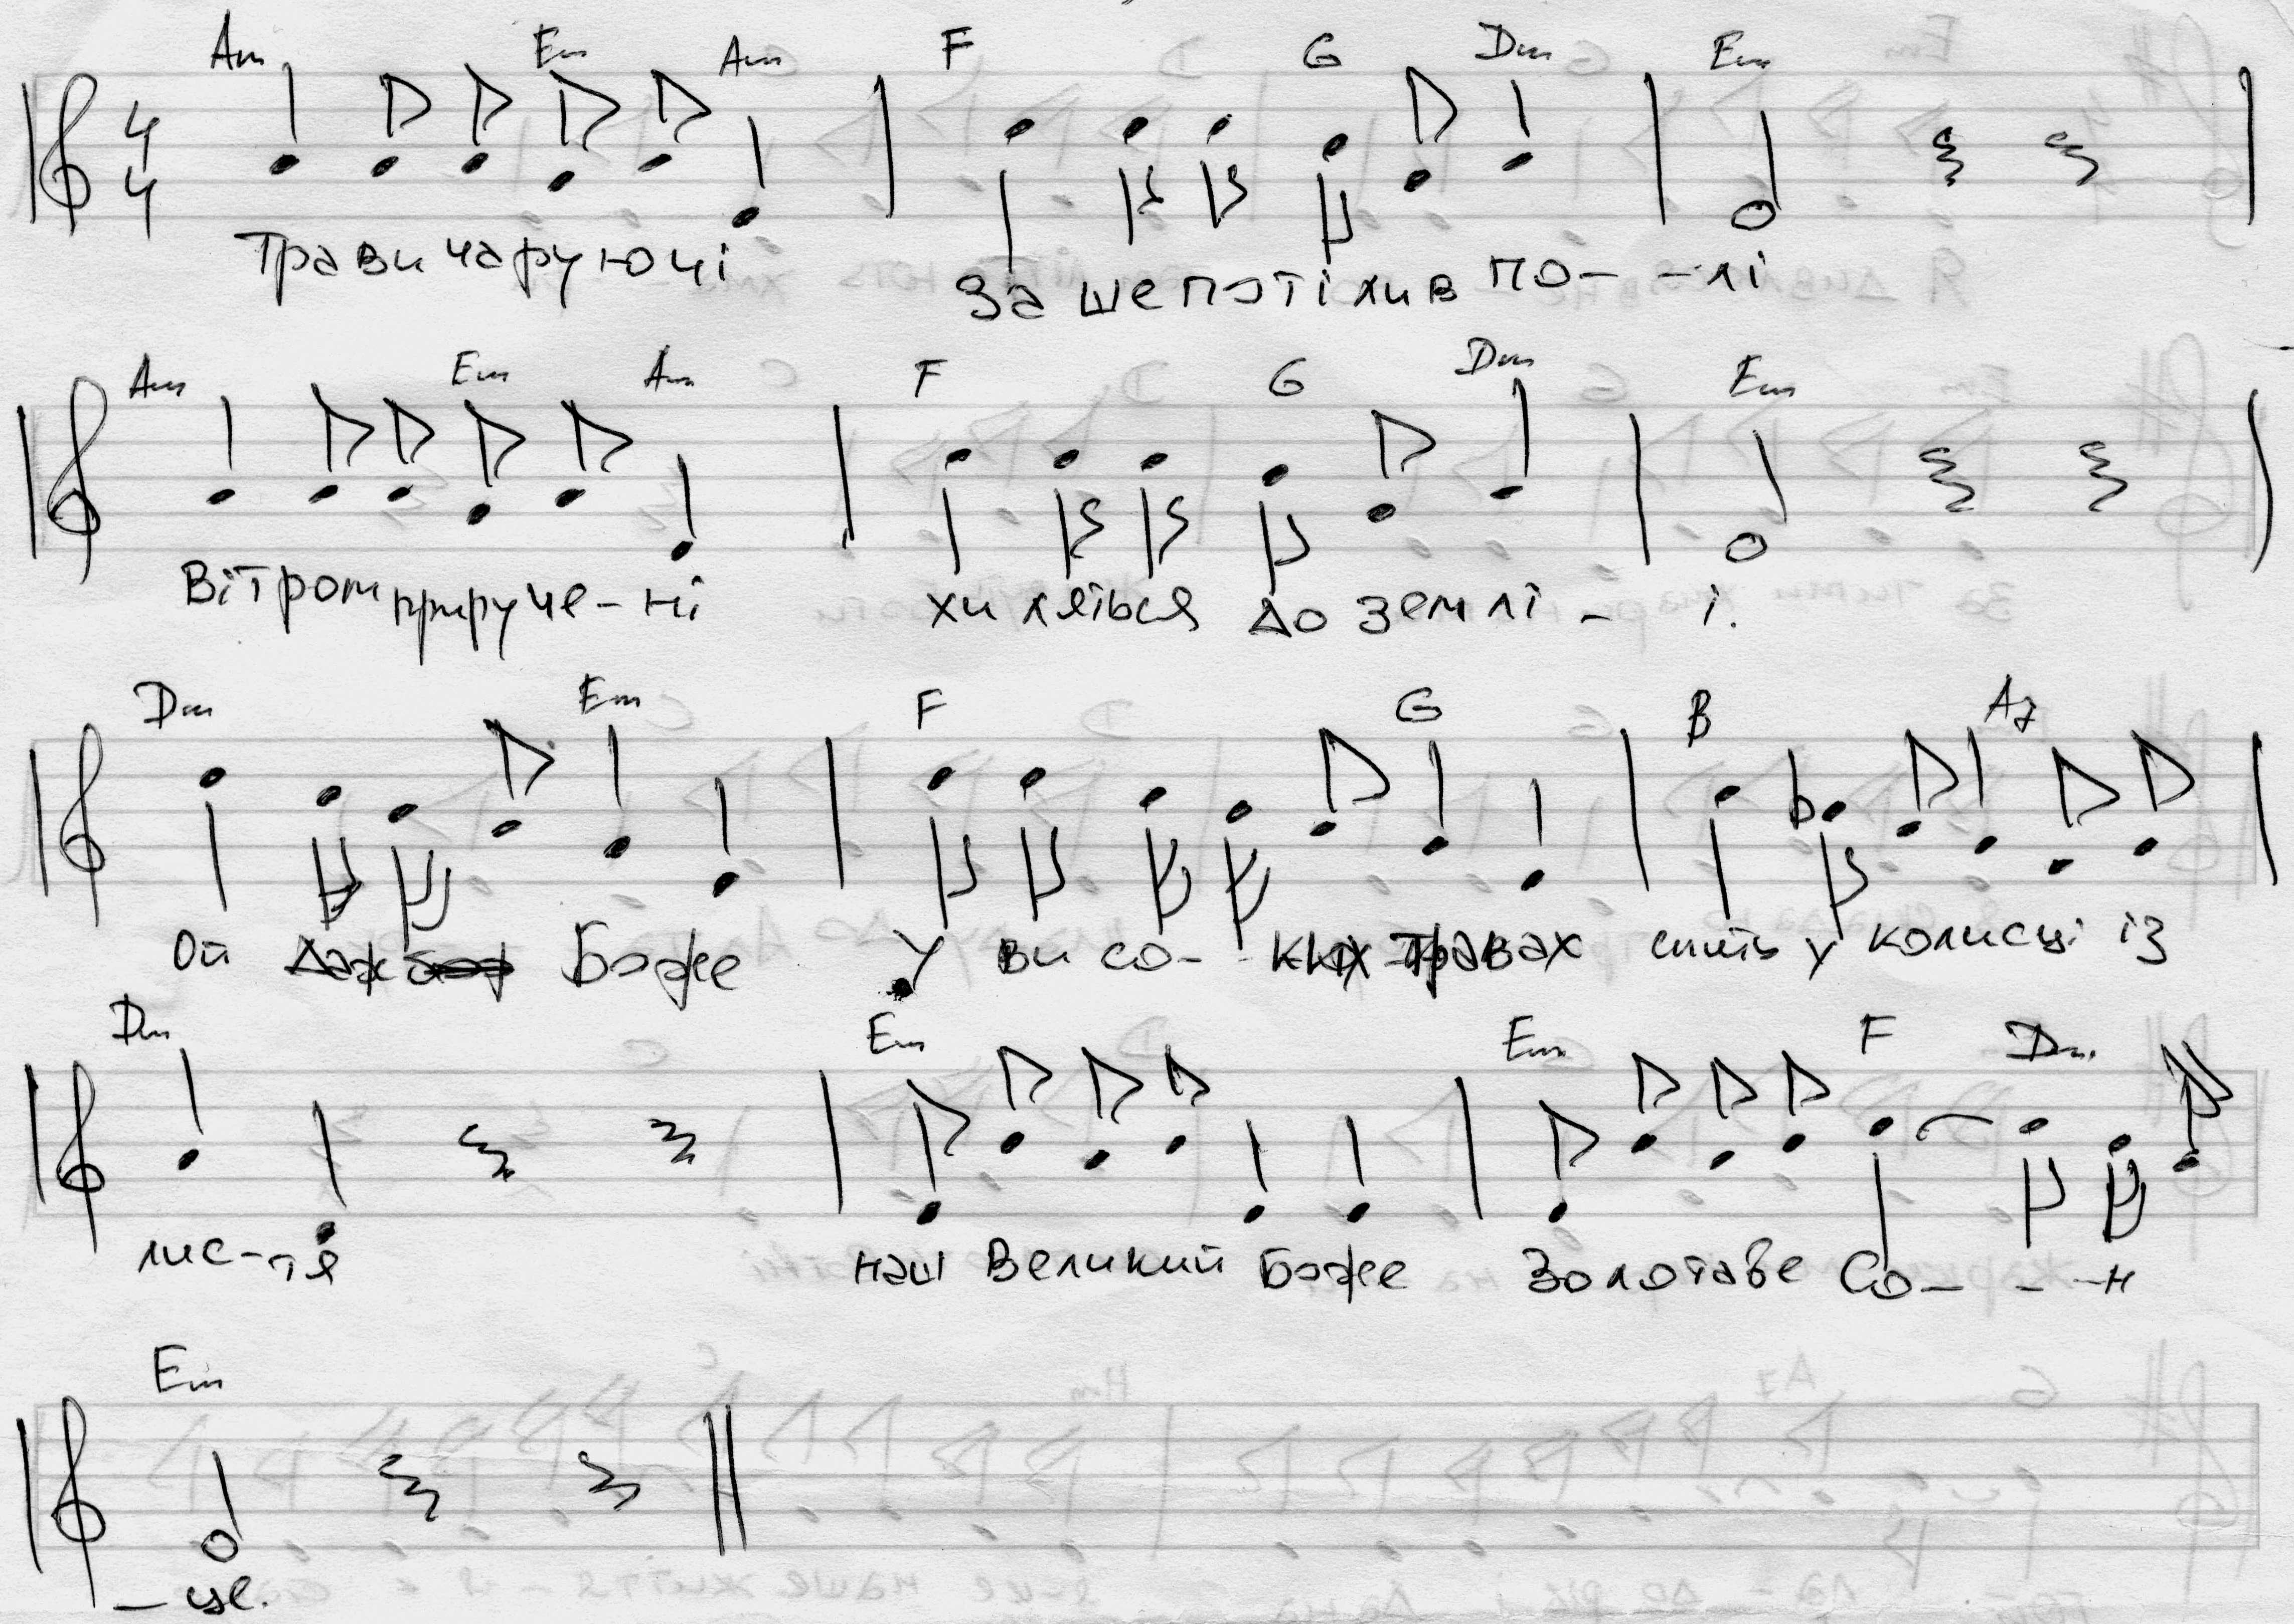 Am Em Am F G Dm Em
4
4
Трави чаруючі За шепотіли в по- -лі
Am Em Am F G Dm Em
Вітром прируче-ні хиляться до землі - і.
Dm Em F G B A7
Ой Боже У ви со- - ких травах спить у колисці із
Dm Em Em F Dm
лис-тя наш Великий Боже Золотаве Со- - -н
Em
- це.